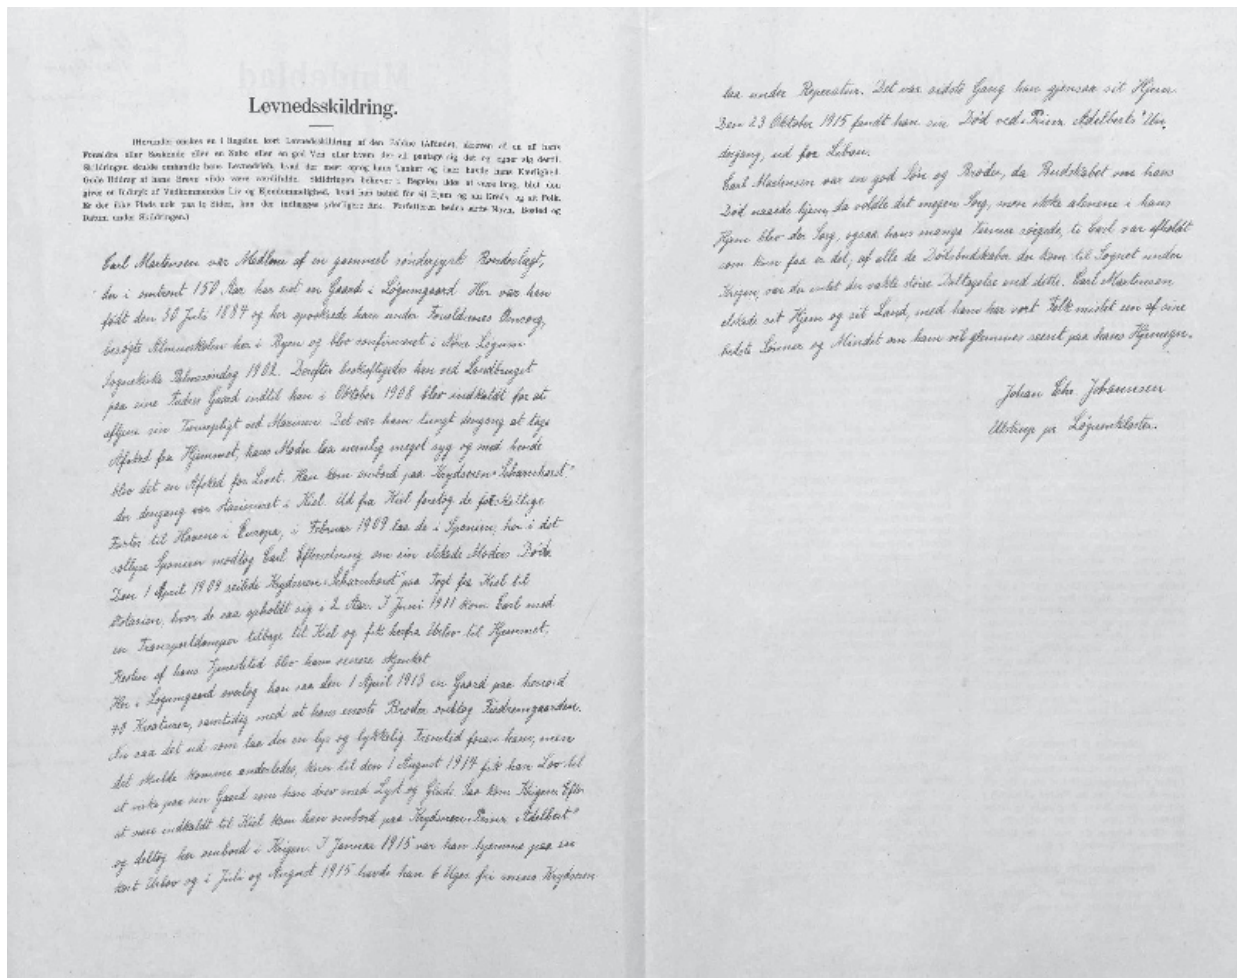 Levnedsskildring.
(Herunder ønskes en i Regelen kort Levnedsskildring af den Faldne (Afdøde), skreven af en af hans
Forældre eller Søskende eller en Nabo eller en god Ven eller hvem der vil paatage sig det og egner sig dertil.
Skildringen skulde omhandle hans Levnedsløb, hvad der mest optog hans Tanker og især havde hans Kærlighed.
Gode Uddrag af hans Breve vilde være værdifulde. Skildringen behøver i Regelen ikke at være lang, blot den
giver et Indtryk af Vedkommendes Liv og Ejendommelighed, hvad han betød for sit Hjem og sin Kreds og sit Folk.
Er der ikke Plads nok paa to Sider, kan der indlægges yderligere Ark. Forfatteren bedes sætte Navn, Bosted og
Datum under Skildringen.)
Carl Martensen var Medlem af en gammel sønderjysk Bondeslægt,
der i omtrent 150 Aar har eiet en Gaard i Løgumgaard. Her var han
født den 30 Juli 1887 og her opvoksede han under Forældrenes Omsorg,
besøgte Almueskolen her i Byen og blev konfirmeret i Nørre Løgum
Sognekirke Palmesøndag 1902. Derefter beskjæftigedes han ved Landbruget
paa sine Fædres Gaard indtil han i Oktober 1908 blev indkaldt for at
aftjene sin Værnepligt ved Marinen. Det var ham tungt dengang at tage
Afsked fra Hjemmet, hans Moder laa nemlig meget syg og med hende
blev det en Afsked for Livet. Han kom ombord paa Krydseren "Scharnhorst"
der dengang var stationeret i Kiel. Ud fra Kiel foretog de forskellige
Farter til Havne i Europa, i Februar 1909 laa de i Spanien, her i det
sollyse Spanien modtog Carl Efterretning om sin elskede Moders Død.
Den 1 April 1909 seilede Krydseren "Scharnhorst" paa Togt fra Kiel til
Østasien, hvor de saa opholdt sig i 2 Aar. I Juni 1911 kom Carl med
en Transportdamper tilbage til Kiel og fik herfra Urlov til Hjemmet.
Resten af hans Tjenestetid blev ham senere skjenket
Her i Løgumgaard overtog han saa den 1 April 1913 en Gaard paa henved
40 Kreaturer, samtidig med at hans eneste Broder overtog Fædrenegaarden.
Nu saa det ud som laa der en lys og lykkelig Fremtid foran ham, men
det skulde komme anderledes, kun til den 1 August 1914 fik han Lov til
at virke paa sin Gaard som han drev med Lyst og Glæde. Saa kom Krigen. Efter
at være indkaldt til Kiel kom han ombord paa Krydseren "Prinz Adelbert"
og deltog her ombord i Krigen. I Januar 1915 var han hjemme paa en
kort Urlov og i Juli og August 1915 havde han 6 Uger fri mens Krydseren
laa under Reperatur. Det var sidste Gang han gjensaa sit Hjem.
Den 23 Oktober 1915 fandt han sin Død ved "Prinz Adelberts" Un-
dergang, ud for Libau.
Carl Martensen var en god Søn og Broder, da Budskabet om hans
Død naaede hjem, da voldte det megen Sorg, men ikke alenene i hans
Hjem blev der Sorg, ogsaa hans mange Venner sørgede, ti Carl var afholdt
som kun faa er det; af alle de Dødsbudskaber der kom til Sognet under
Krigen, var der intet der vakte større Deltagelse end dette. Carl Martensen
elskede sit Hjem og sit Land, med ham har vort Folk mistet een af sine
bedste Sønner og Mindet om ham vil glemmes seent paa hans Hjemegn.
Johan Chr. Johannsen
Ulstrup pr Løgumkloster.